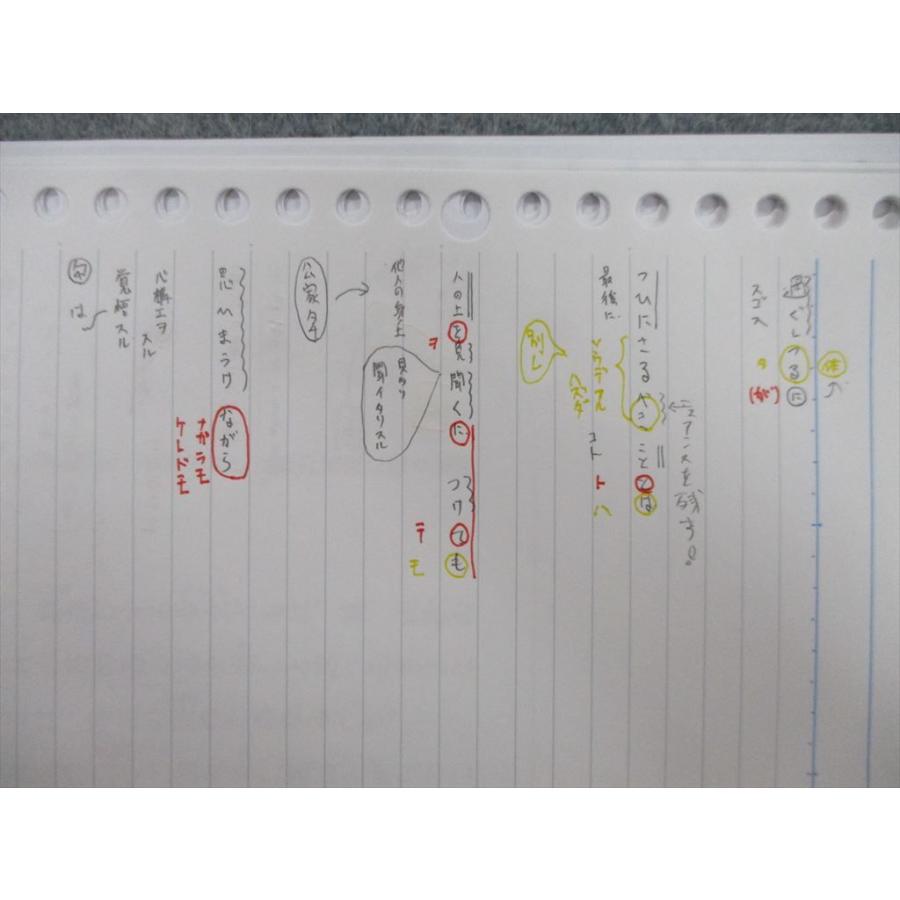 体
過ぐしつるに
スゴス
タ
(が)
ニュアンスを残す!
つひにさるべきこととは
最後に
ソウデアル
ハズダ
コト
ト
ハ
別レ
人の上を見聞くにつけても
ヲ
テ
モ
他人の身上
見タリ
聞イタリスル
公家タチ
思ひまうけながら
ナガラモ
ケレドモ
心構エヲ
スル
覚悟スル
は